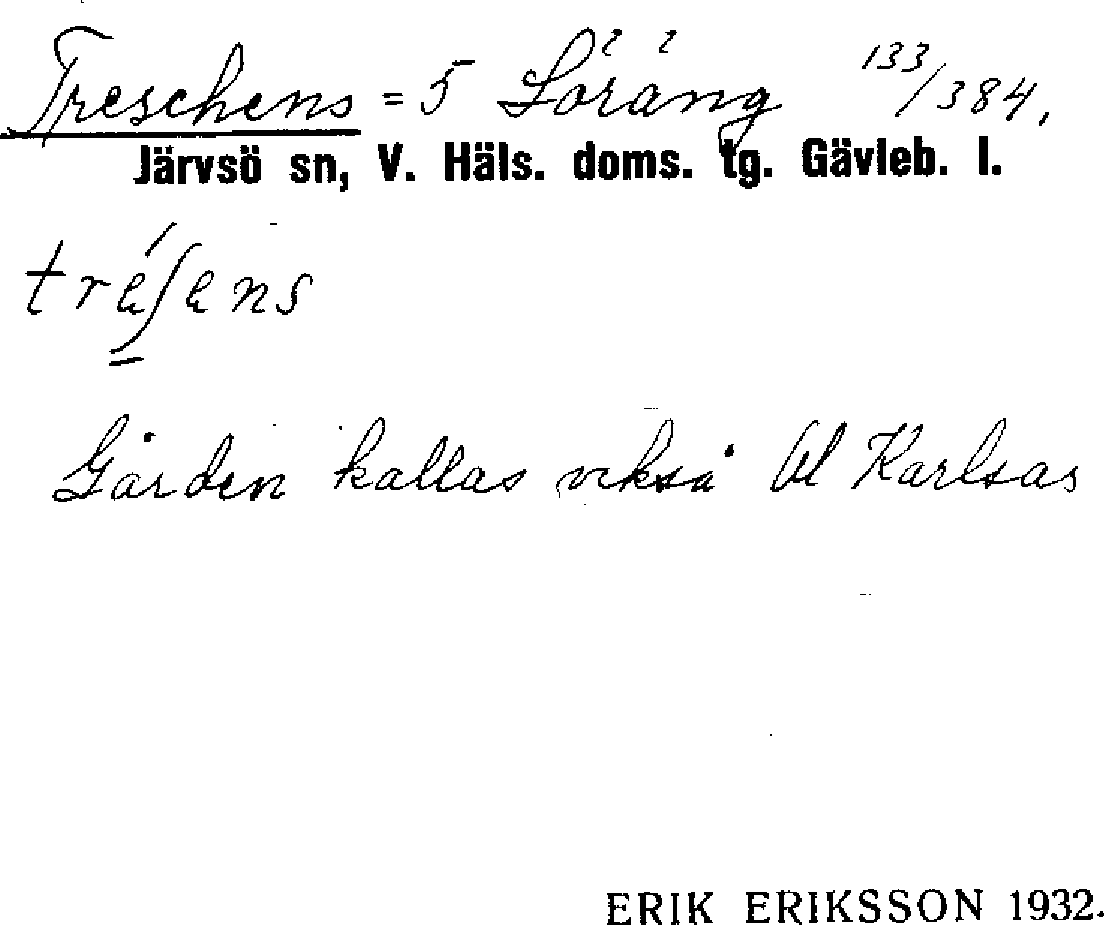 Treschens = 5 Löräng 133/384,
Järvsö sn, V. Häls. doms. tg. Gävleb. l.
tréʃens
Gården kallas också Ol Karlsas
ERIK ERIKSSON 1932.